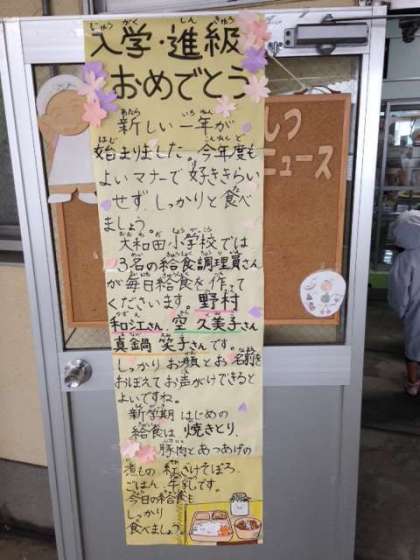 入学・進級
おめでとう
新しい一年が
始まりました。今年度も
よいマナーで好ききらい
せず、しっかりと食べ
ましょう。
大和田小学校では
3名の給食調理員さん
が毎日給食を作って
くださいます。野村
和江さん、空 久美子さん
真鍋 笑子さんです。
しっかりお顔とお名前を
おぼえてお声がけできると
よいですね。
新学期はじめの
給食は焼きとり、
豚肉とあつあげの
煮もの 紅ざけそぼろ、
ごはん、牛乳です。
今日の給食も
しっかり
食べましょう。
ニュース